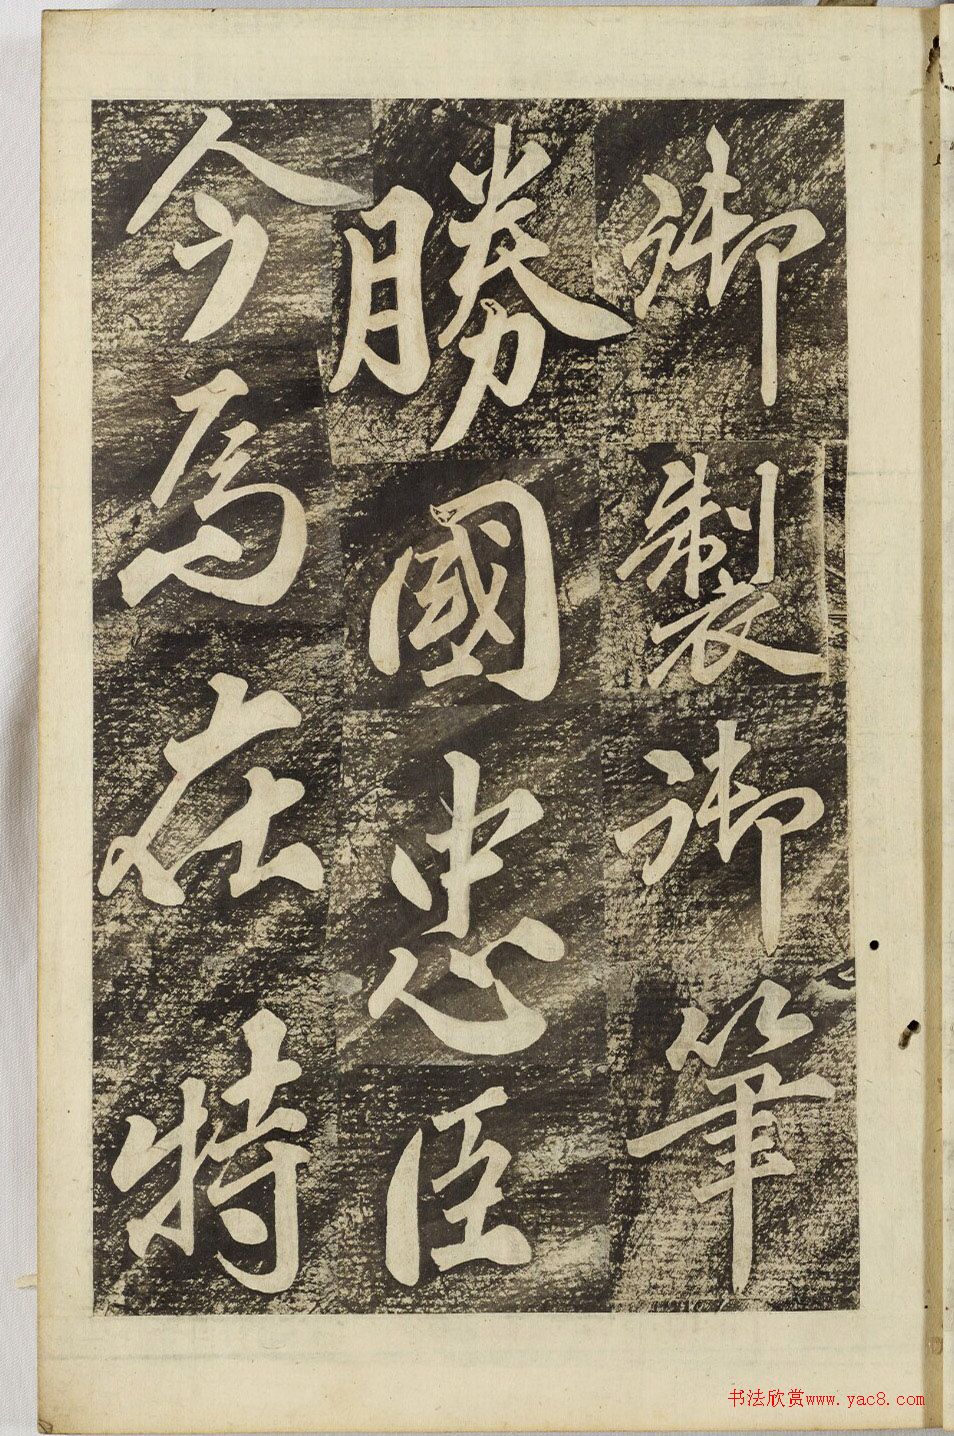 御製御筆
勝國忠臣
今焉在特
书法欣赏www.yac8.com